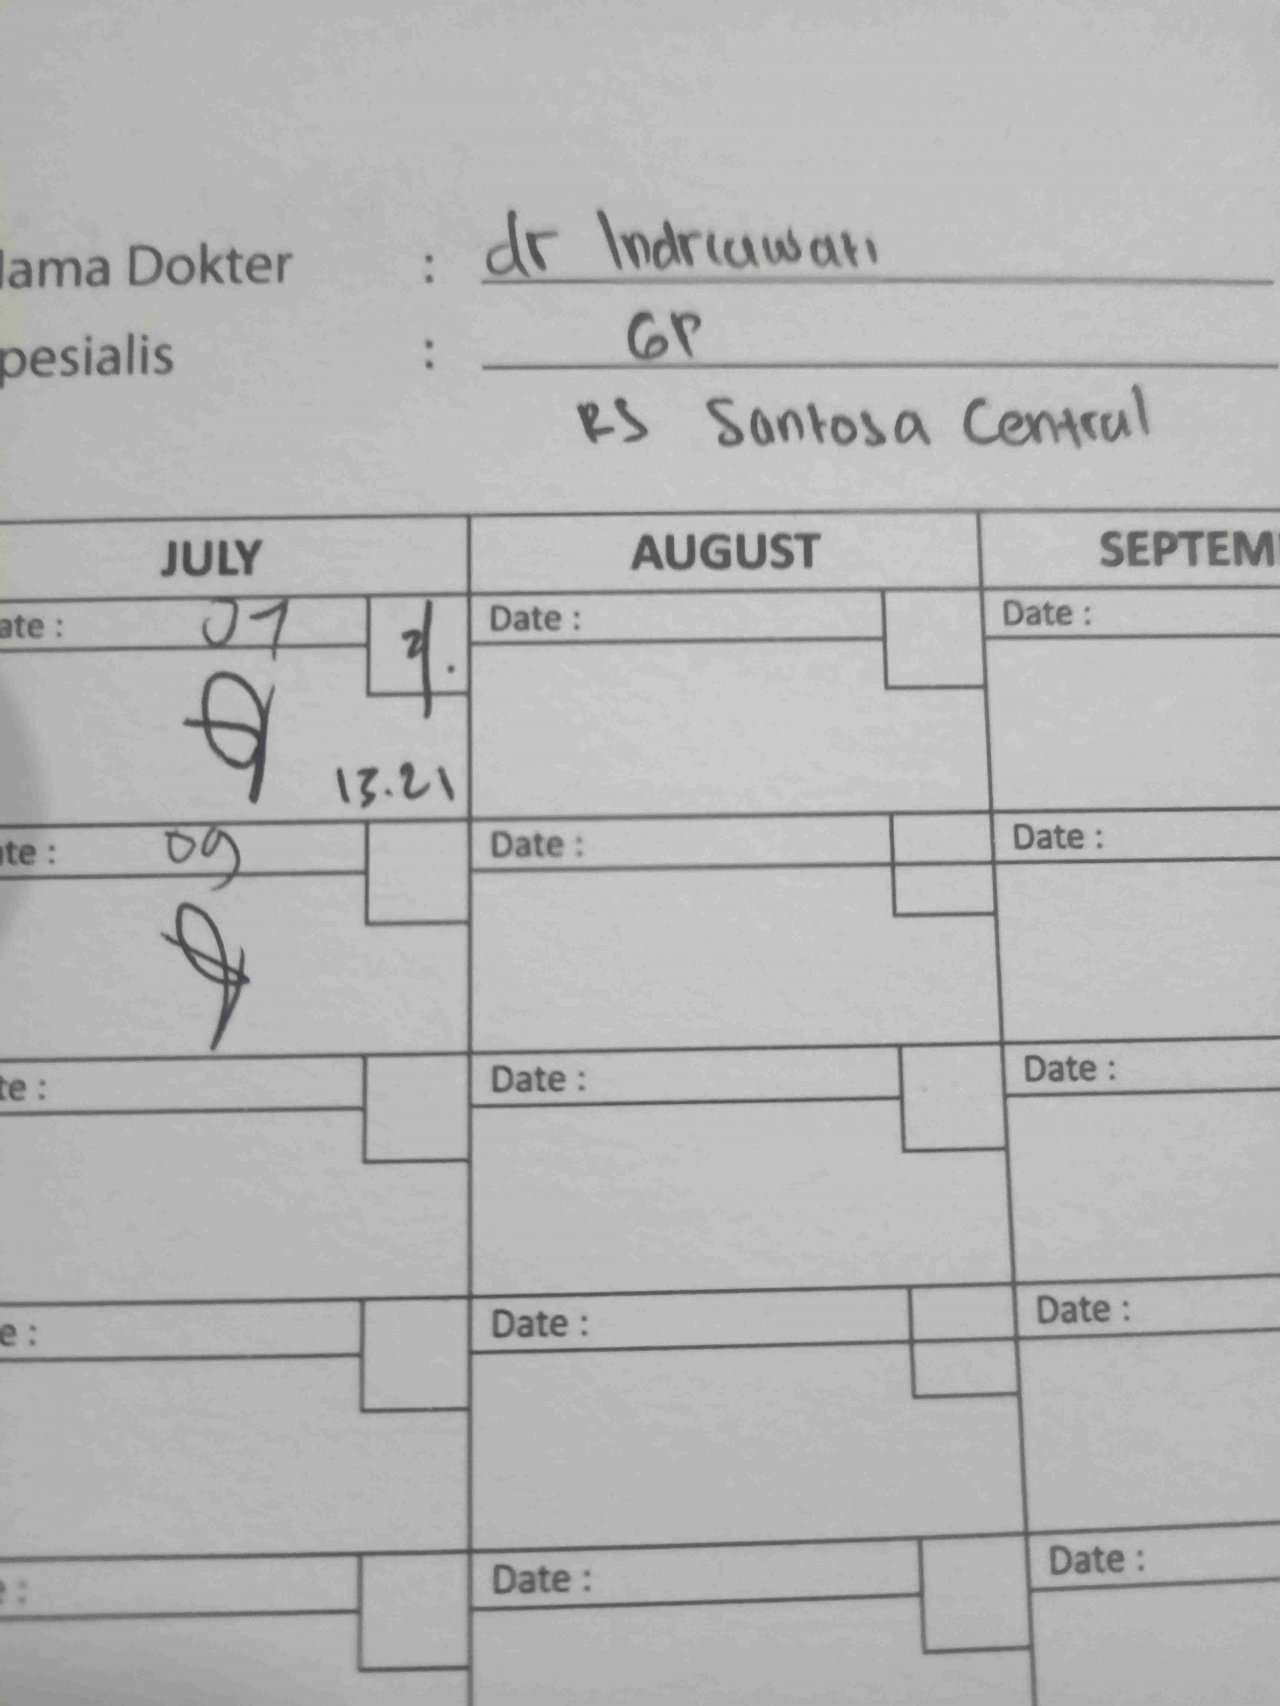 lama Dokter : dr Indriawati
pesialis : GP
RS Santosa Central
JULY AUGUST SEPTEM
ate : 07 Date : Date :
13.21
te : 09 Date : Date :
te : Date : Date :
e : Date : Date :
: Date : Date :